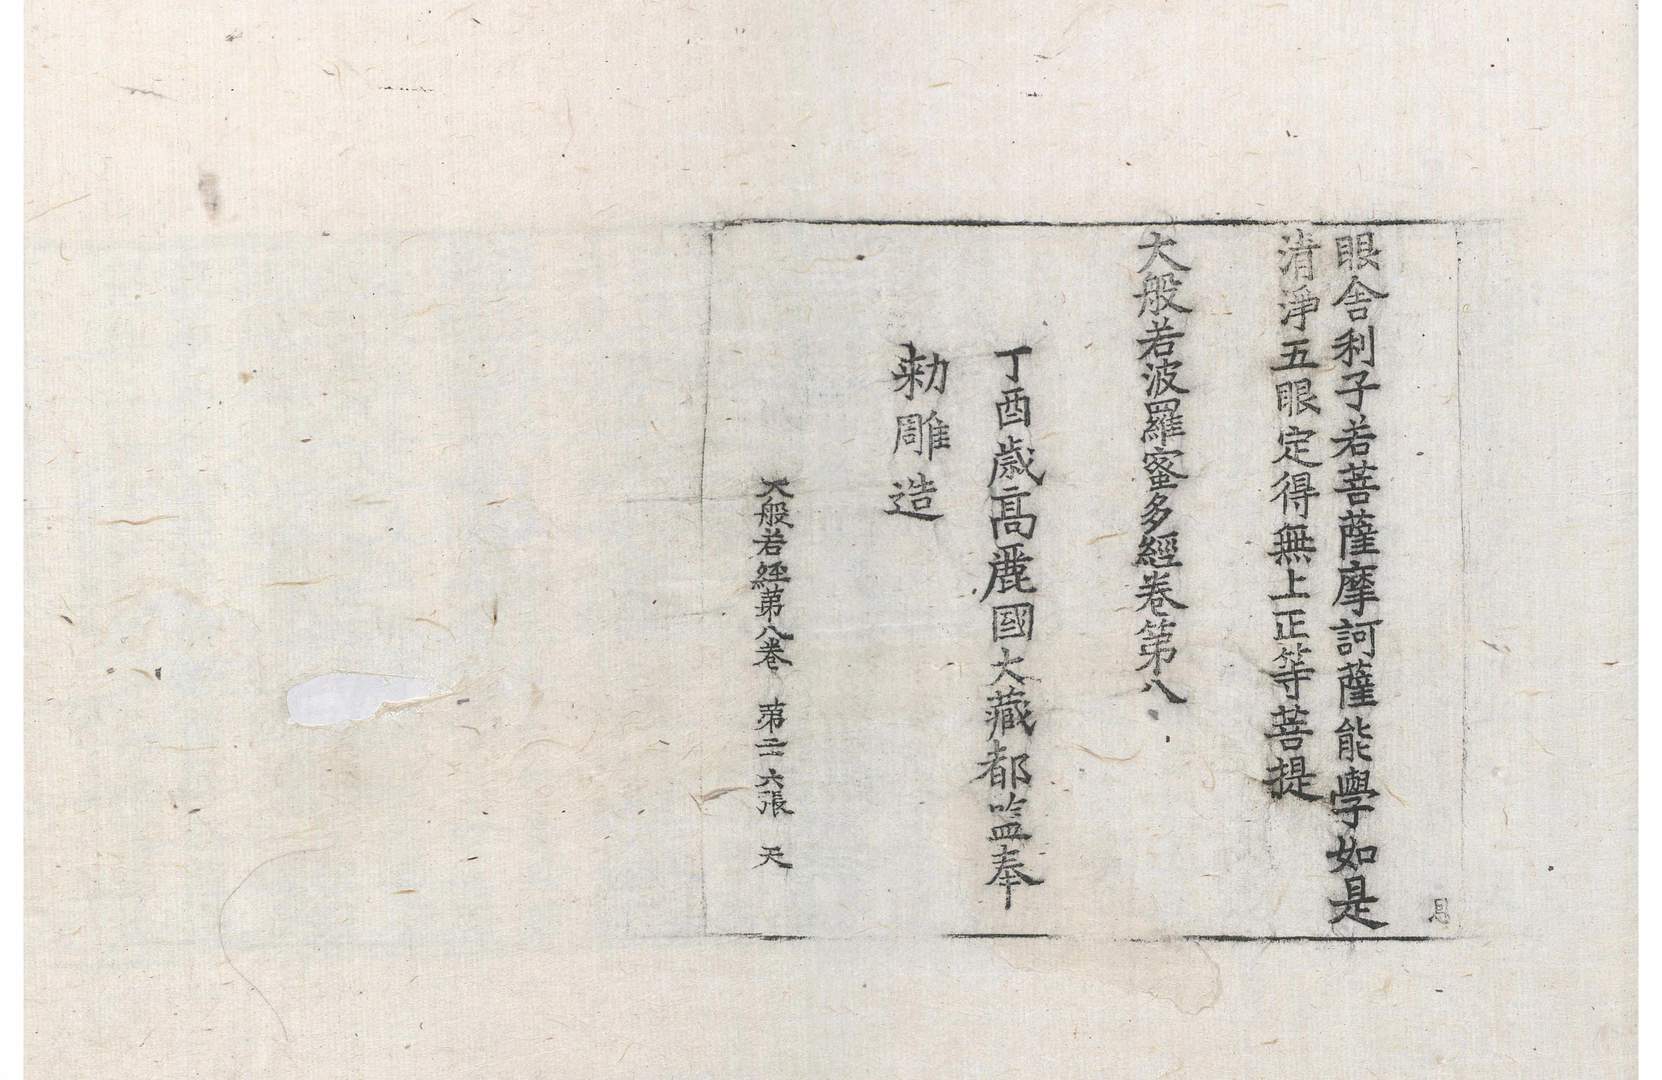 眼舍利子若菩薩摩訶薩能學如是
清淨五眼定得無上正等菩提
大般若波羅蜜多經卷第八
丁酉歲高麗國大藏都監奉
勑雕造
大般若經第八卷 第二六張 天